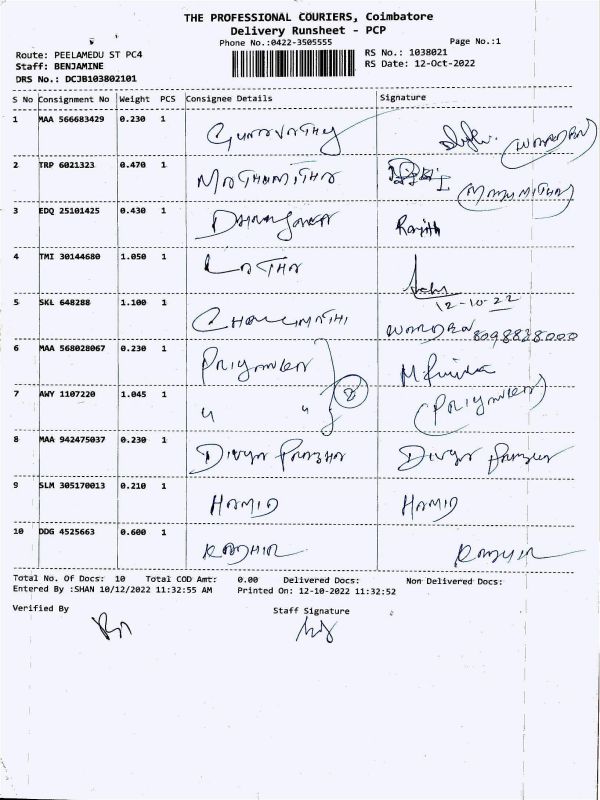 THE PROFESSIONAL COURIERS, Coimbatore
Delivery Runsheet - PCP
Phone No.:0422-3505555 Page No.:1
Route: PEELAMEDU ST PC4 RS No.: 1038021
Staff: BENJAMINE RS Date: 12-Oct-2022
DRS No.: DCJB103802101
S No Consignment No Weight PCS Consignee Details Signature
1 MAA 566683429 0.230 1 (WARDEN)
2 TRP 6021323 0.470 1 MATHUMITHA (MATHUMITHA)
3 EDQ 25101425 0.430 1 Ranjith
4 TMI 30144680 1.050 1 LATHA
12-10-22
5 SKL 648288 1.100 1 WARDEN 8098828000
6 MAA 568028067 0.230 1 PRIYANKA
7 AWY 1107220 1.045 1 " " 2 (PRIYANKA)
8 MAA 942475037 0.230 1 DIVYA PRABHA DIVYA PRABHA
9 SLM 305170013 0.210 1 HAMID HAMID
10 DDG 4525663 0.600 1
Total No. Of Docs: 10 Total COD Amt: 0.00 Delivered Docs: Non Delivered Docs:
Entered By :SHAN 10/12/2022 11:32:55 AM Printed On: 12-10-2022 11:32:52
Verified By Staff Signature